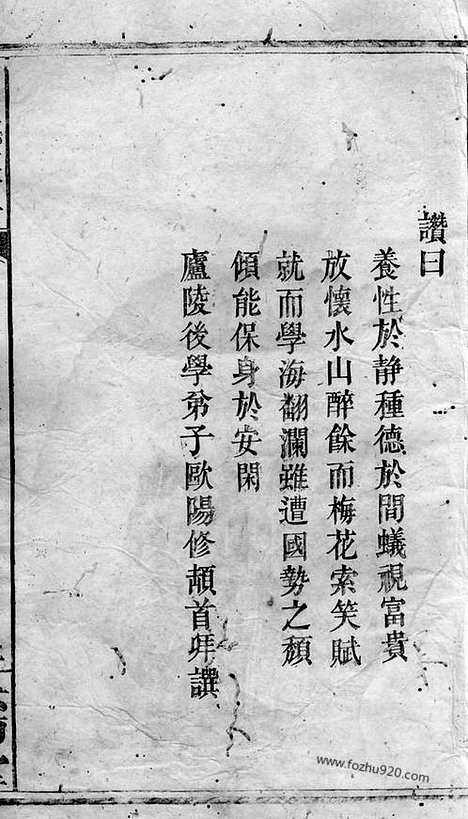 讚曰
養性於静種德於間蟻視富貴
放懷水山醉餘而梅花索笑賦
就而學海翻瀾雖遭國勢之頹
傾能保身於安閑
廬陵後學弟子歐陽修頡首拜譔
www.fozhu920.com